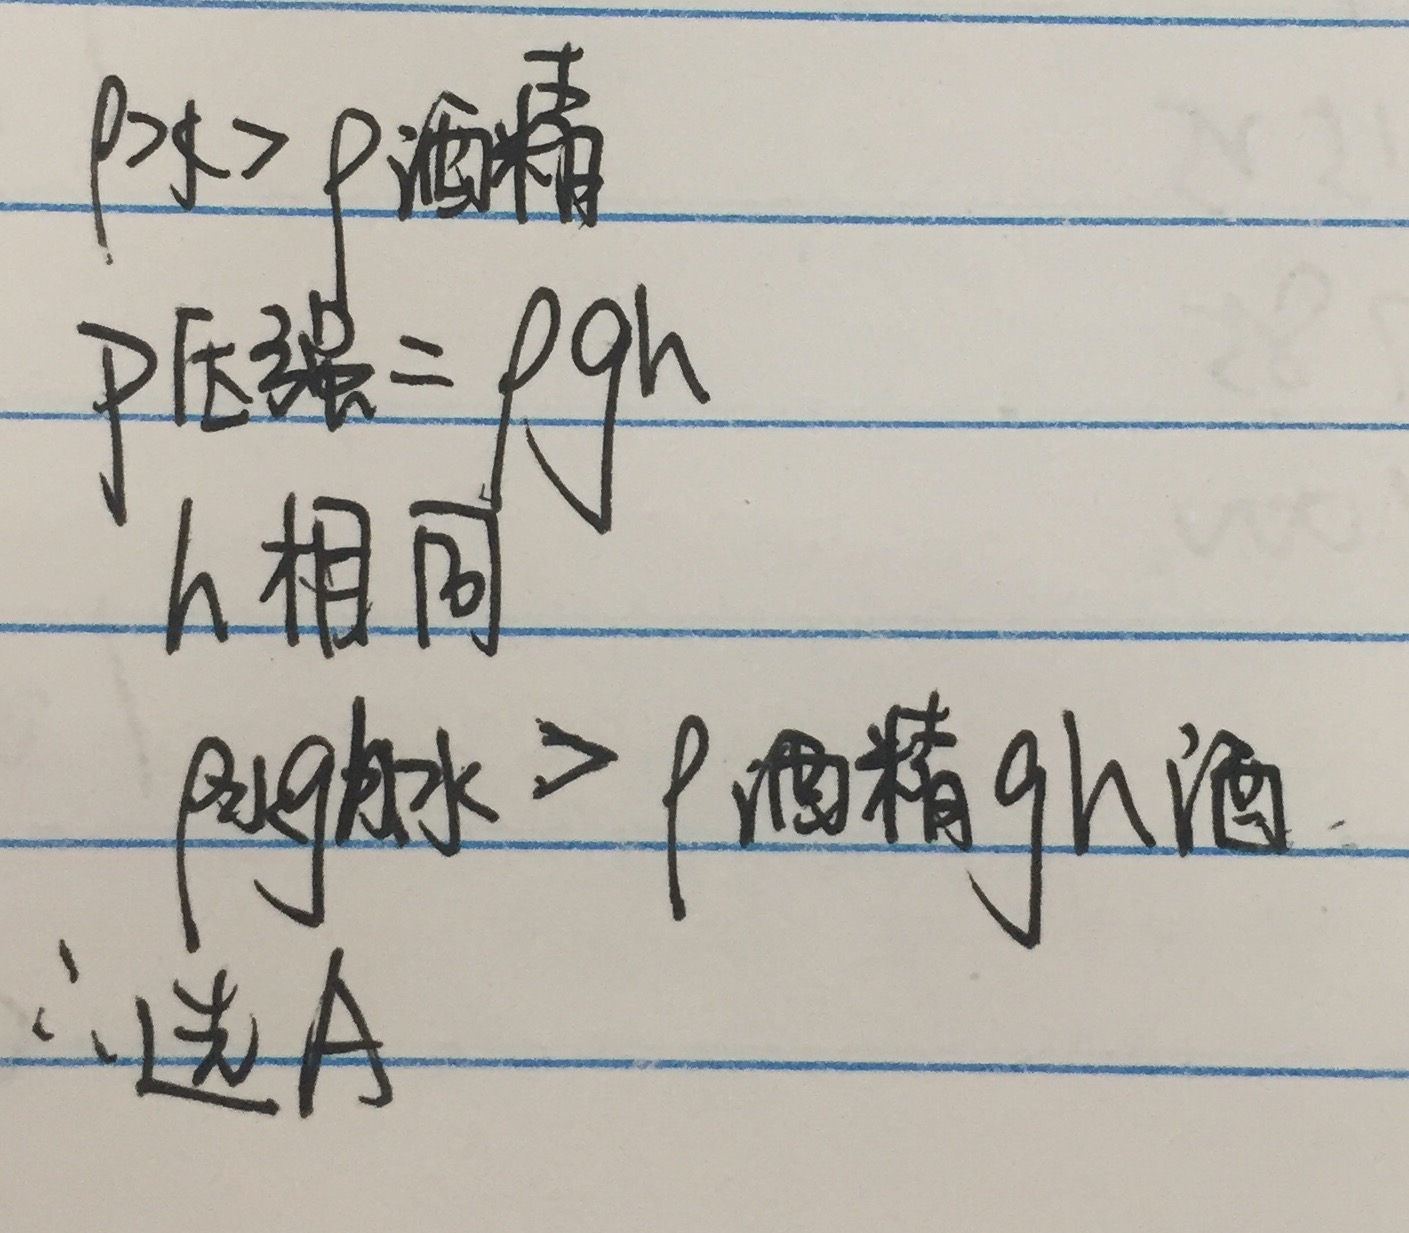 ρ水>ρ酒精
P压强=ρgh
h相同
ρ水gh水>ρ酒精gh酒
∴选A